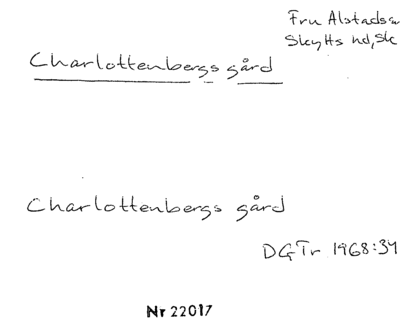 Fru Alstads sn
Skytts hd, Sk
Charlottenbergs gård
Charlottenbergs gård
DGTr 1968:34
Nr 22017